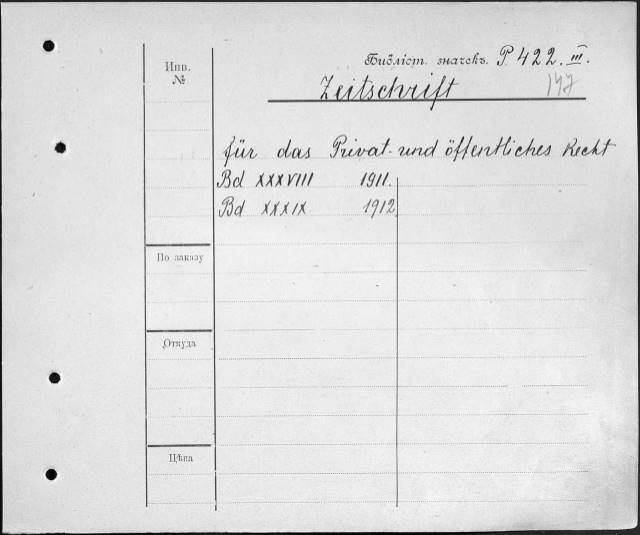 Библіот. значекъ. P. 422. III.
Инв. №
147
Zeitschrift
für das Privat- und öffentliches Recht
Bd XXXVIII 1911.
Bd XXXIX 1912.
По заказу
Откуда
Цѣна